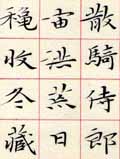 散騎侍郎
宙洪荒日
穐收冬藏